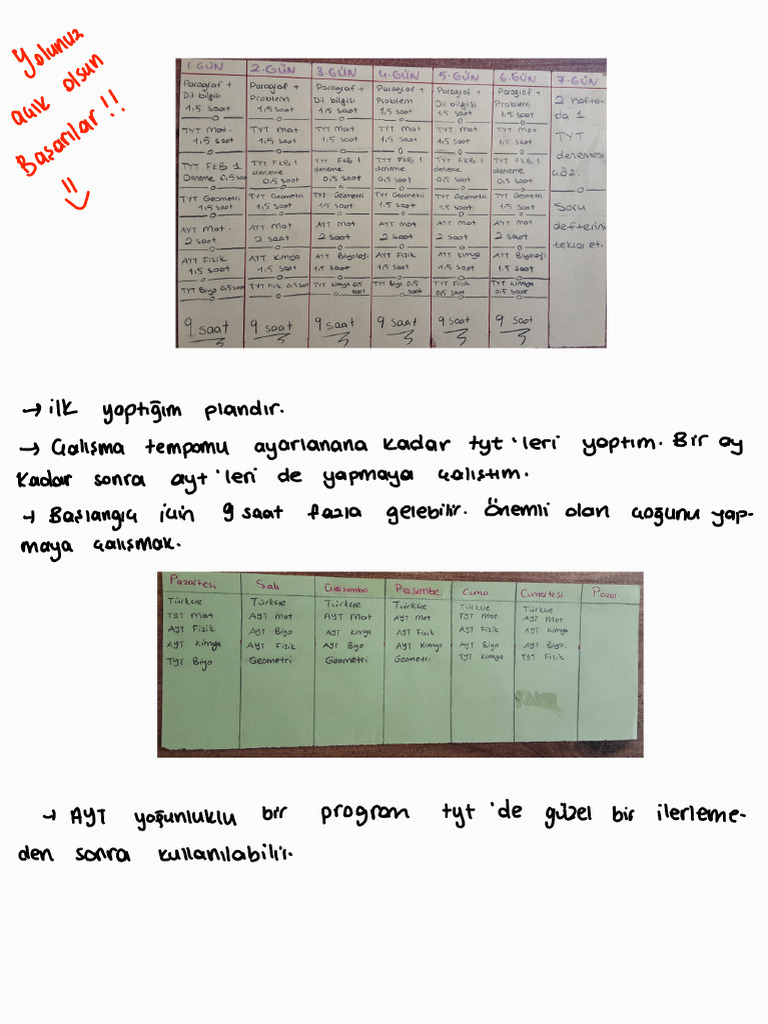 Yolunuz
açık olsun
Başarılar !!
1. GÜN
Paragraf +
Dil bilgisi
1,5 saat
TYT Mat.
1,5 saat
TYT FKB 1
Deneme 0,5 saat
TYT Geometri
1,5 saat
AYT Mat.
2 saat
AYT Fizik
1,5 saat
TYT Biyo 0,5 saat
9 saat
2. GÜN
Paragraf +
Problem
1,5 saat
TYT Mat
1,5 saat
TYT FKB 1
deneme
0,5 saat
TYT Geometri
1,5 saat
AYT Mat
2 saat
AYT Kimya
1,5 saat
TYT Fizik 0,5 saat
9 saat
3. GÜN
Paragraf +
Dil bilgisi
1,5 saat
TYT Mat
1,5 saat
TYT FKB 1
deneme
0,5 saat
TYT Geometri
1,5 saat
AYT Mat
2 saat
AYT Biyoloji
1,5 saat
TYT Kimya 0,5
saat
9 saat
4. GÜN
Paragraf +
Problem
1,5 saat
TYT Mat
1,5 saat
TYT FKB 1
deneme
0,5 saat
TYT Geometri
1,5 saat
AYT Mat
2 saat
AYT Fizik
1,5 saat
TYT Biyo 0,5
saat
9 saat
5. GÜN
Paragraf +
Dil bilgisi
1,5 saat
TYT Mat
1,5 saat
TYT FKB 1
deneme
0,5 saat
TYT Geometri
1,5 saat
AYT Mat
2 saat
AYT Kimya
1,5 saat
TYT Fizik
0,5 saat
9 saat
6. GÜN
Paragraf +
Problem
1,5 saat
TYT Mat
1,5 saat
TYT FKB 1
deneme
0,5 saat
TYT Geometri
1,5 saat
AYT Mat
2 saat
AYT Biyoloji
1,5 saat
TYT Kimya
0,5 saat
9 saat
7. GÜN
2 hafta-
da 1
TYT
denemesi
çöz.
Soru
defterini
tekrar et.
→ ilk yaptığım plandır.
→ Çalışma tempomu ayarlanana kadar tyt'leri yaptım. Bir ay
kadar sonra ayt'leri de yapmaya çalıştım.
→ Başlangıç için 9 saat fazla gelebilir. Önemli olan çoğunu yap-
maya çalışmak.
Pazartesi
Türkçe
TYT Mat
AYT Fizik
AYT Kimya
TYT Biyo
Salı
Türkçe
AYT Mat
AYT Biyo
AYT Fizik
Geometri
Çarşamba
Türkçe
AYT Mat
AYT Kimya
AYT Biyo
Geometri
Perşembe
Türkçe
AYT Mat
AYT Fizik
AYT Kimya
Geometri
Cuma
Türkçe
TYT Mat
AYT Fizik
AYT Biyo
TYT Kimya
Cumartesi
Türkçe
AYT Mat
AYT Kimya
AYT Biyo
TYT Fizik
Pazar
→ AYT yoğunluklu bir program tyt'de güzel bir ilerleme-
den sonra kullanılabilir.